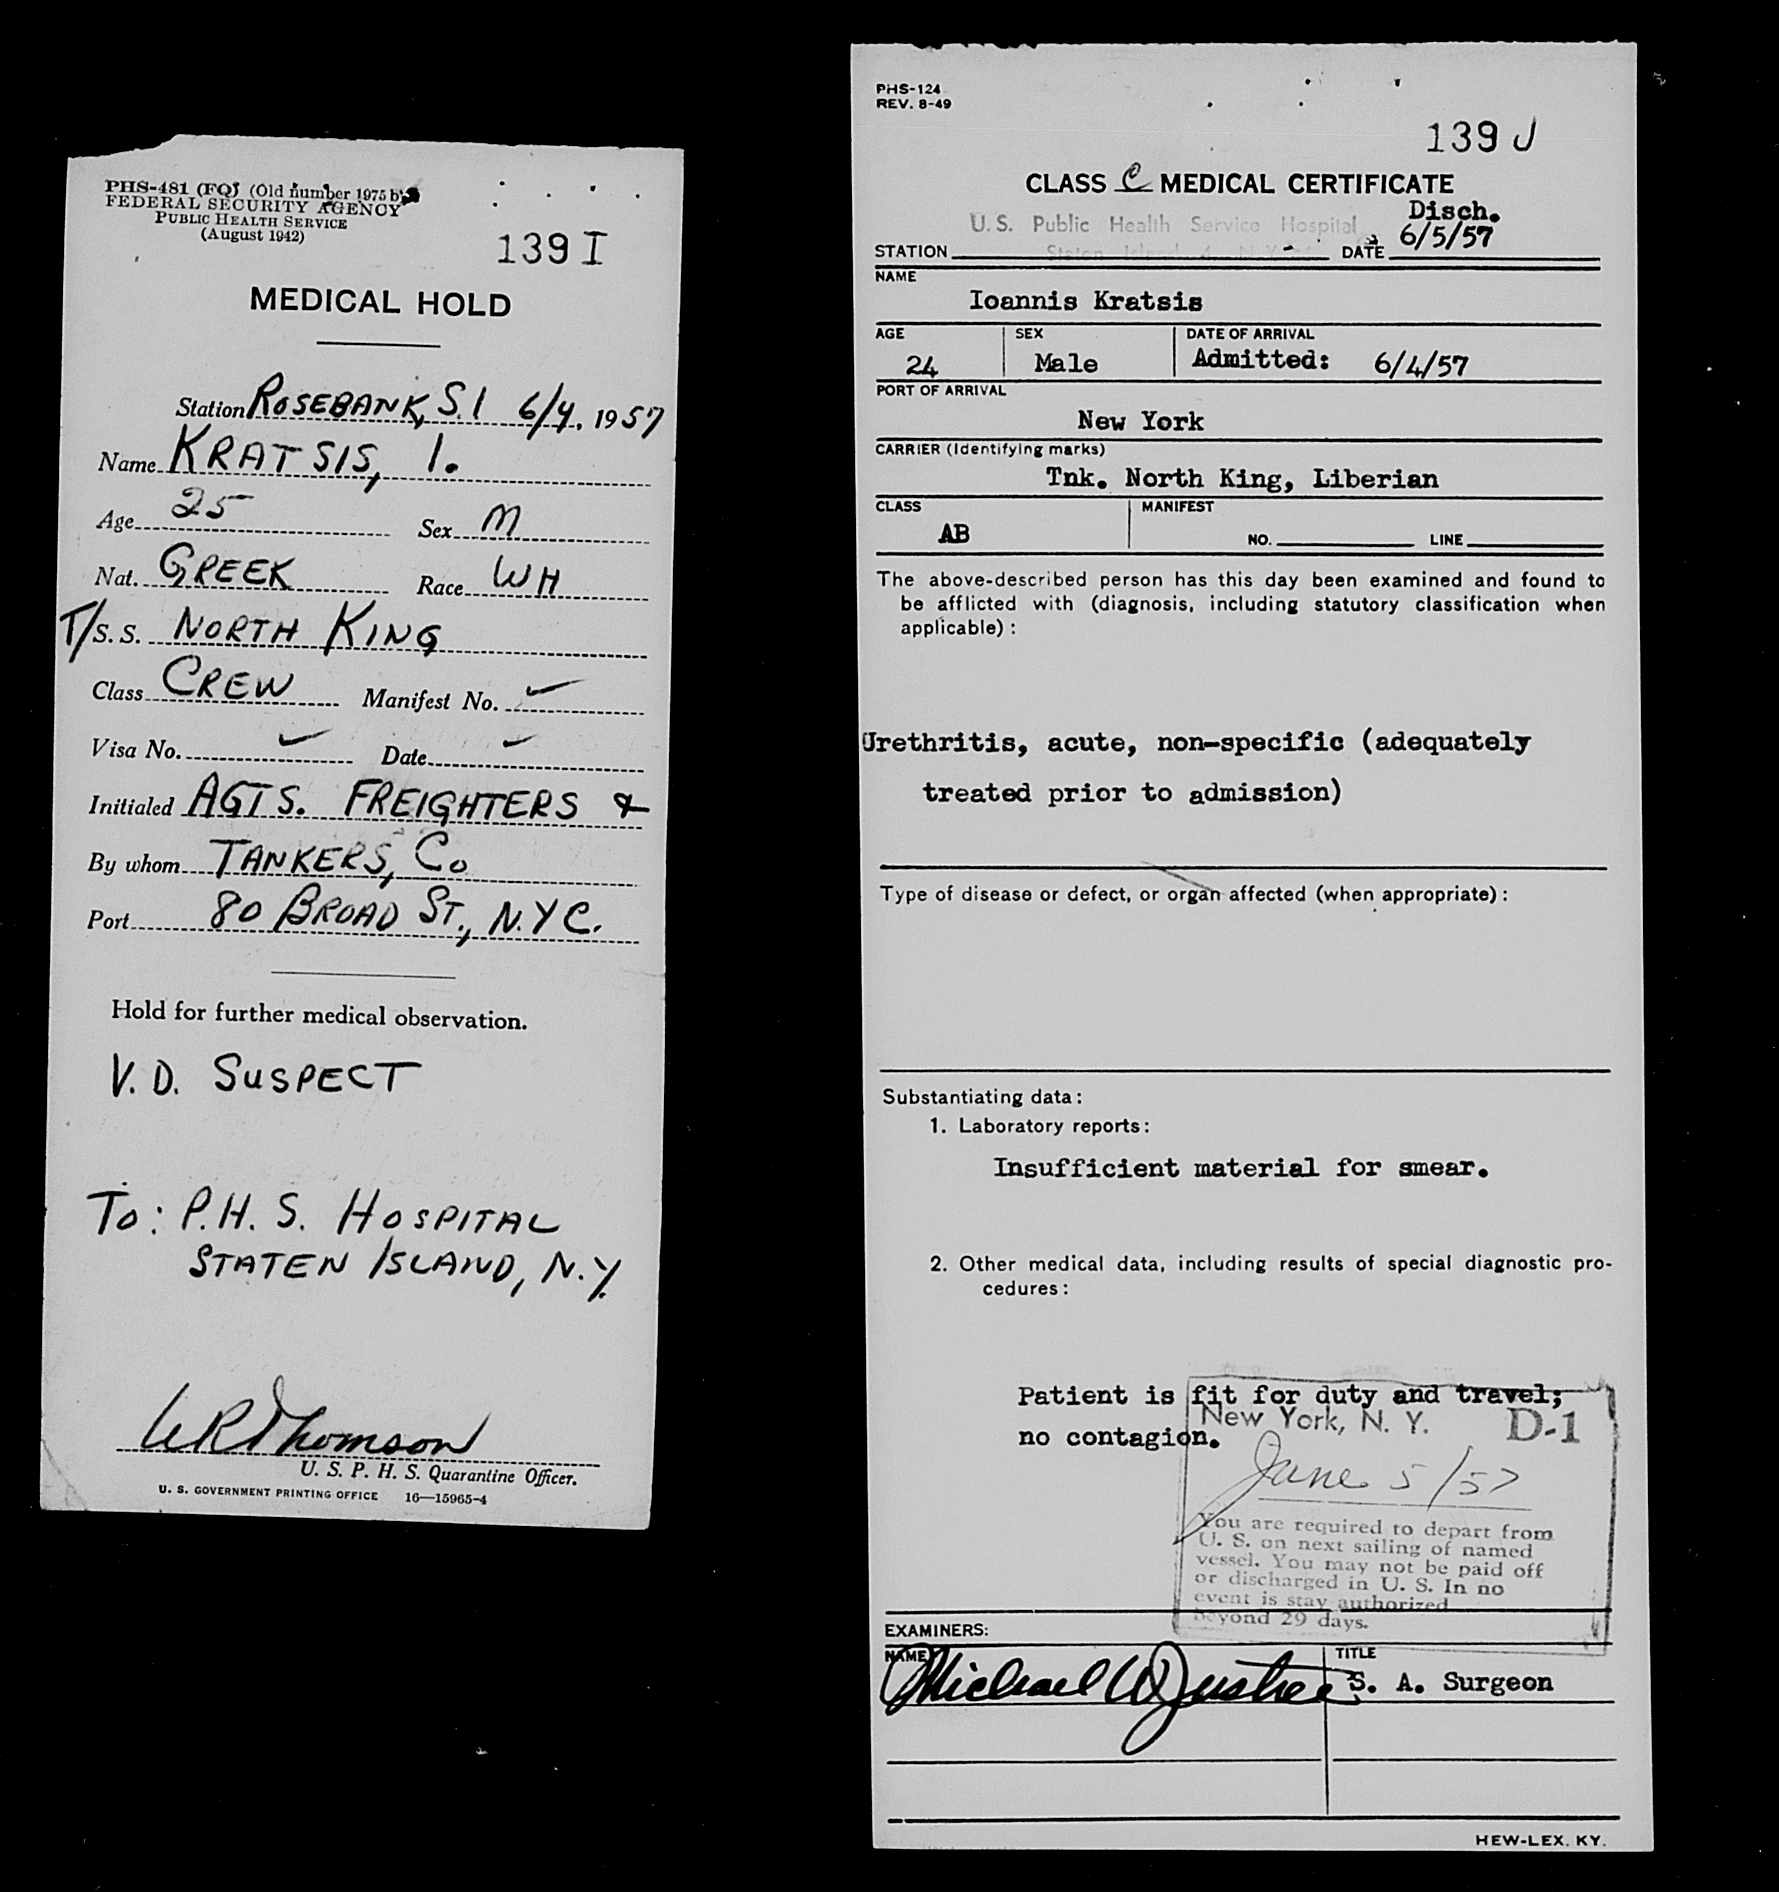 PHS-481 (FQ) (Old number 1975 b)
FEDERAL SECURITY AGENCY
PUBLIC HEALTH SERVICE
(August 1942)
139 I
MEDICAL HOLD
Station ROSEBANK, S.I 6/4, 1957
Name KRATSIS, I.
Age 25 Sex M
Nat. GREEK Race WH
T/S. S. NORTH KING
Class CREW Manifest No. ✓
Visa No. ✓ Date ✓
Initialed AGTS. FREIGHTERS &
By whom TANKERS, Co
Port 80 BROAD ST., N.Y C.
Hold for further medical observation.
V. D. SUSPECT
To: P.H. S. HOSPITAL
STATEN ISLAND, N.Y.
WR Thomson
U. S. P. H. S. Quarantine Officer.
U. S. GOVERNMENT PRINTING OFFICE 16—15965-4
PHS-124
REV. 8-49
139 J
CLASS C MEDICAL CERTIFICATE
Disch.
U. S. Public Health Service Hospital
STATION Staten Island 4, N. Y. DATE 6/5/57
NAME
Ioannis Kratsis
AGE SEX DATE OF ARRIVAL
24 Male Admitted: 6/4/57
PORT OF ARRIVAL
New York
CARRIER (Identifying marks)
Tnk. North King, Liberian
CLASS MANIFEST
AB NO. LINE
The above-described person has this day been examined and found to
be afflicted with (diagnosis, including statutory classification when
applicable) :
Urethritis, acute, non-specific (adequately
treated prior to admission)
Type of disease or defect, or organ affected (when appropriate) :
Substantiating data :
1. Laboratory reports :
Insufficient material for smear.
2. Other medical data, including results of special diagnostic pro-
cedures :
Patient is fit for duty and travel;
no contagion.
New York, N. Y. D-1
June 5/57
You are required to depart from
U. S. on next sailing of named
vessel. You may not be paid off
or discharged in U. S. In no
event is stay authorized
beyond 29 days.
EXAMINERS:
NAME TITLE
Michael W Justice S. A. Surgeon
HEW-LEX. KY.